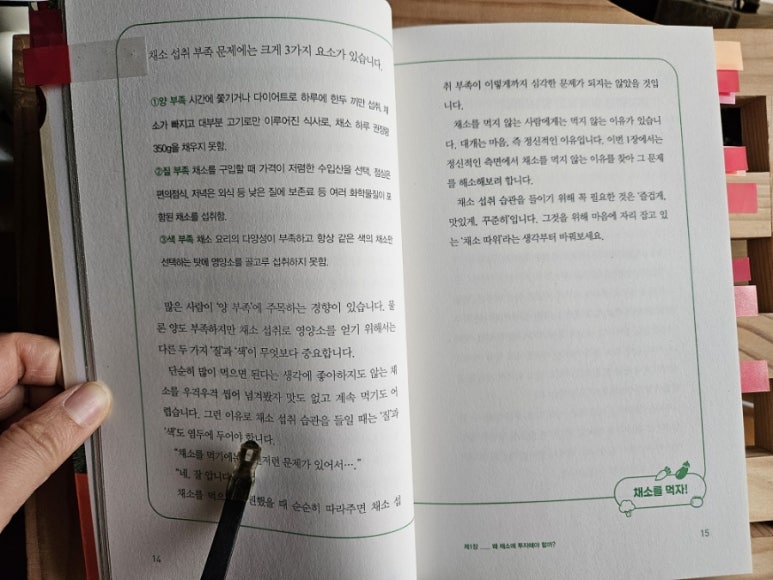 채소 섭취 부족 문제에는 크게 3가지 요소가 있습니다.
①양 부족 시간에 쫓기거나 다이어트로 하루에 한두 끼만 섭취, 채
소가 빠지고 대부분 고기로만 이루어진 식사로, 채소 하루 권장량
350g을 채우지 못함.
②질 부족 채소를 구입할 때 가격이 저렴한 수입산을 선택, 점심은
편의점식, 저녁은 외식 등 낮은 질에 보존료 등 여러 화학물질이 포
함된 채소를 섭취함.
③색 부족 채소 요리의 다양성이 부족하고 항상 같은 색의 채소만
선택하는 탓에 영양소를 골고루 섭취하지 못함.
많은 사람이 ‘양 부족’에 주목하는 경향이 있습니다. 물
론 양도 부족하지만 채소 섭취로 영양소를 얻기 위해서는
다른 두 가지 ‘질’과 ‘색’이 무엇보다 중요합니다.
단순히 많이 먹으면 된다는 생각에 좋아하지도 않는 채
소를 우걱우걱 씹어 넘겨봤자 맛도 없고 계속 먹기도 어
렵습니다. 그런 이유로 채소 섭취 습관을 들일 때는 ‘질’과
‘색’도 염두에 두어야 합니다.
“채소를 먹기에는 문제가 있어서….”
“네, 잘 압니다
채소를 먹으 했을 때 순순히 따라주면 채소 섭
14
취 부족이 이렇게까지 심각한 문제가 되지는 않았을 것입
니다.
채소를 먹지 않는 사람에게는 먹지 않는 이유가 있습니
다. 대개는 마음, 즉 정신적인 이유입니다. 이번 1장에서는
정신적인 측면에서 채소를 먹지 않는 이유를 찾아 그 문제
를 해소해보려 합니다.
채소 섭취 습관을 들이기 위해 꼭 필요한 것은 ‘즐겁게,
맛있게, 꾸준히’입니다. 그것을 위해 마음에 자리 잡고 있
는 ‘채소 따위’라는 생각부터 바꿔보세요.
채소를 먹자!
제1장 ___ 왜 채소에 투자해야 할까?
15